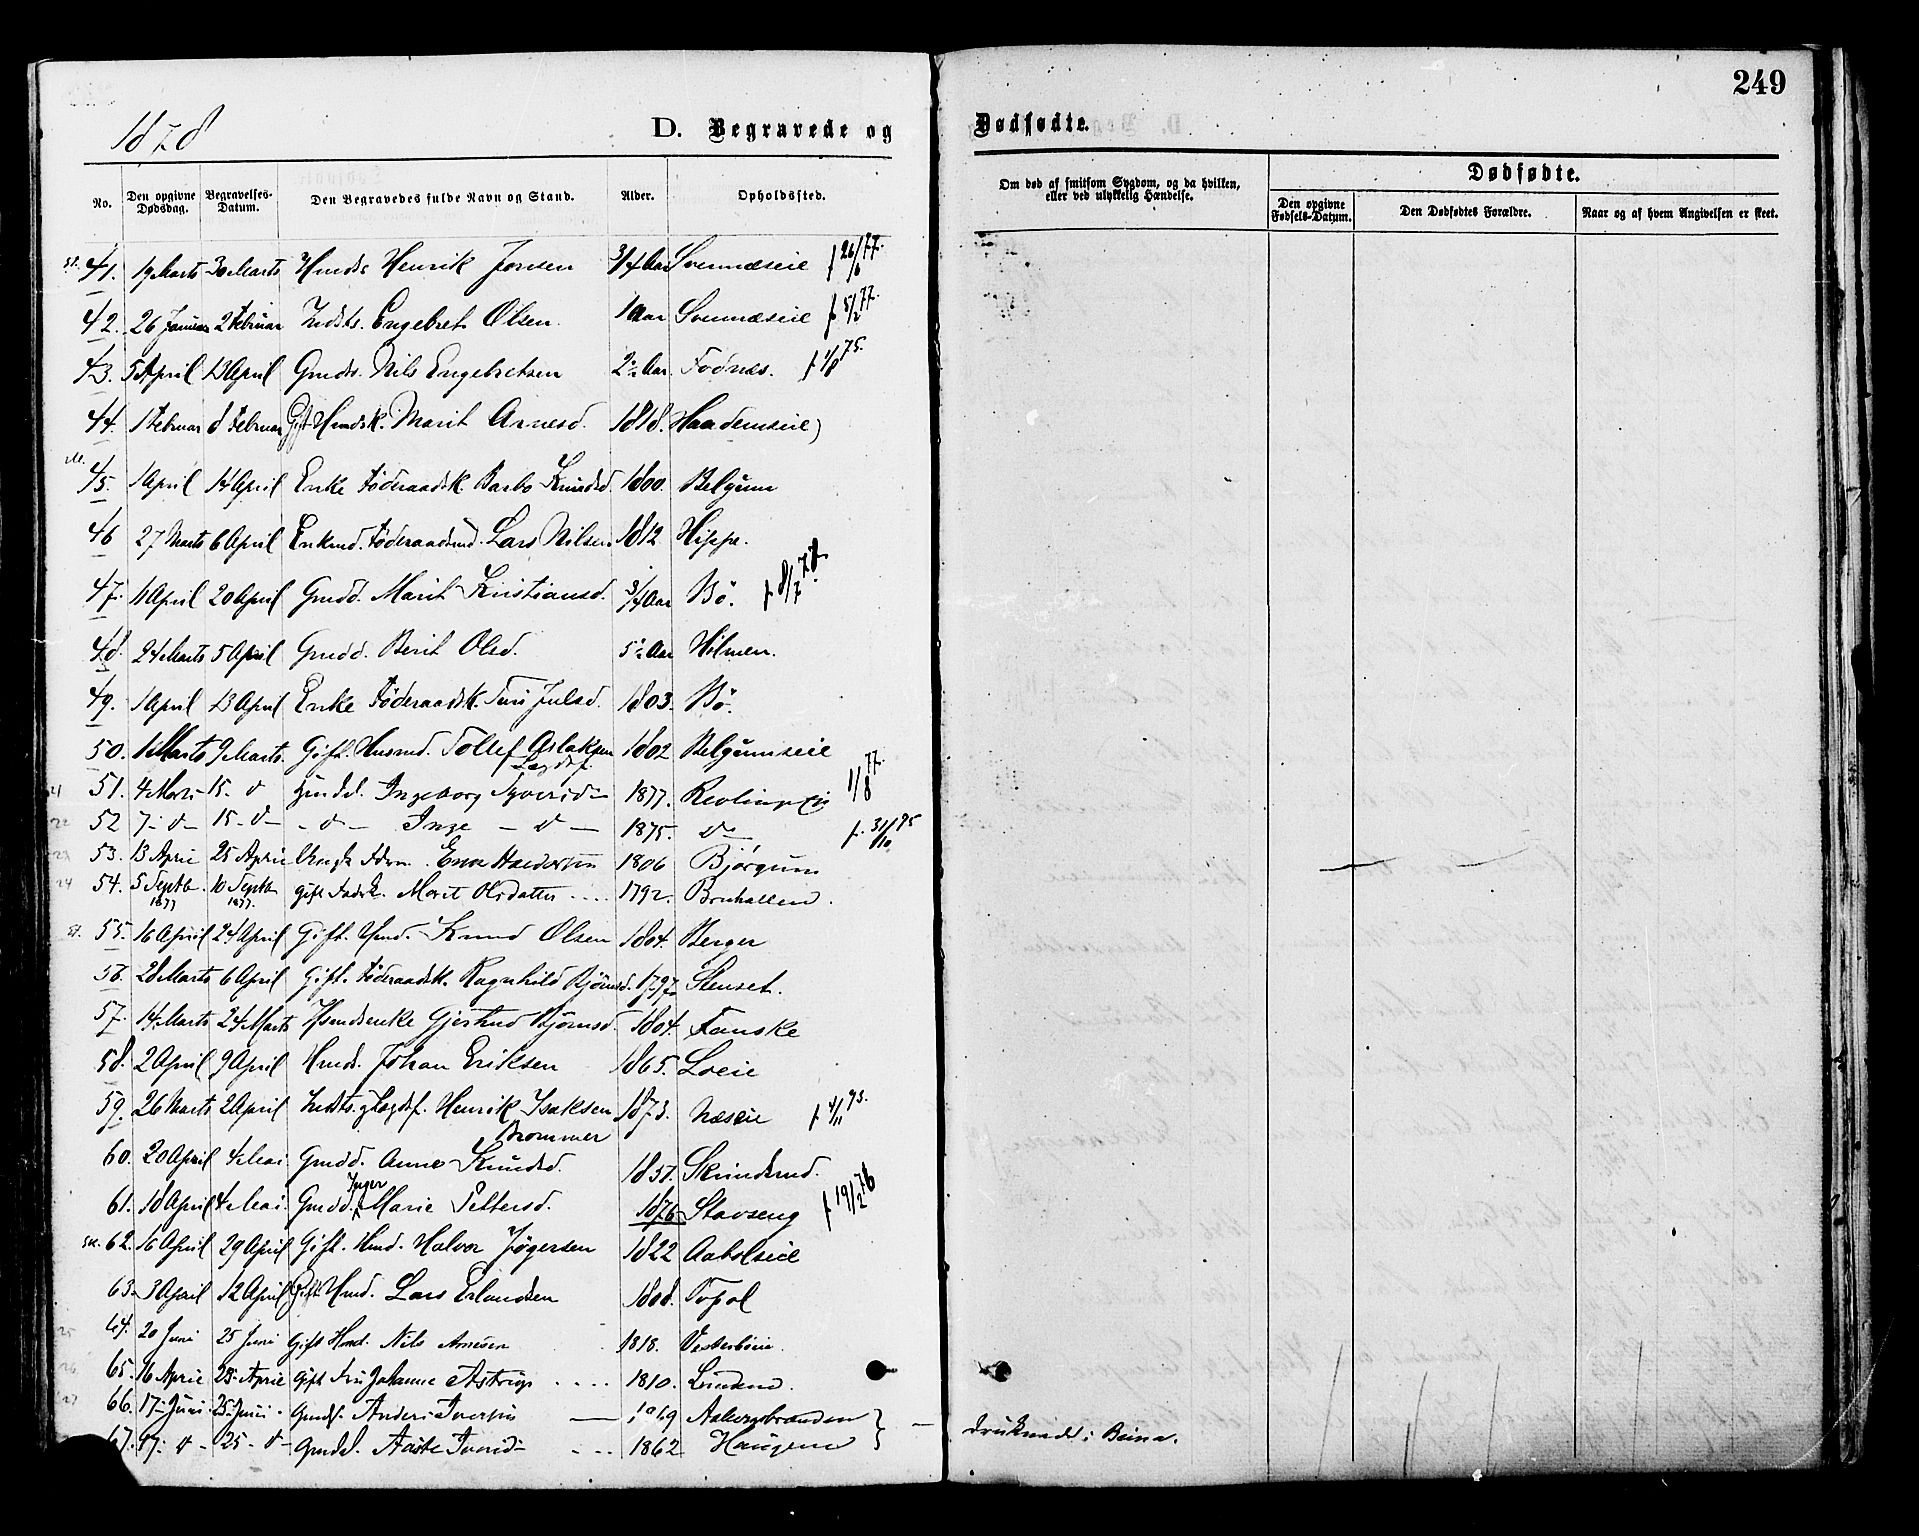 249
1878
D. Begravede og Dødfødte.
No. Den opgivne Dødsdag. Begravelses-Datum. Den Begravedes fulde Navn og Stand. Alder. Opholdssted. Om død af smitsom Sygdom, og da hvilken, eller ved ulykkelig Hændelse. Dødfødte.
Den opgivne Fødsels-Datum. Den Dødfødtes Forældre. Naar og af hvem Angivelsen er skeet.
41. 19 Marts 30 Marts Hmds Henrik Jonsen 3/4 Aar Svennæseie f 26/6 77.
42. 26 Januar 2 Februar Indsts. Engebret Olsen. 1 Aar Svennæseie f 5/2 77.
43. 5 April 13 April Gmds. Nils Engebretsen 2½ Aar. Fodnes. f 1/8 75.
44. 1 Februar 8 Februar Gift Hmdsk. Marit Arnesd. 1818. Haademseie
45. 1 April 14 April Enke Föderaadsk. Barbo Knudsd. 1800. Belgum
46 27 Marts 6 April Enkmd. Föderaadsmd. Lars Nilsen 1812 Hippe.
47. 11 April 20 April Gmdd. Marit Kristiansd. 3/4 Aar Bö. f 8/7
48. 24 Marts 5 April Gmdd. Berit Olsd. 5½ Aar Hilmen.
49. 1 April 13 April Enke Föderaadsk. Turi Julsd. 1803. Bö.
50. 1 Marts 9 Marts. Gift. Husmd. Tollef Aslaksen 1802 Belgumseie
Lægdsf.
51. 4 Marts 15 - d Gmdd. Ingeborg Syversd 1877. 1/8 77.
52 7 - d - 15 - d - - d - Inge - d - 1875. do f. 31/10 75
53. 13 April 25 April 1806 Bjørgum
54. 5 Septb. 1877 10 Septb. 1877. gift Marit Olsdatter .... 1792. Bruhallen.
55. 16 April 24 April Gift. Hmd. Knud Olsen 1804. Berger
56. 28 Marts 6 April Gift. Föderaadsk. Ragnhild Björnsd. 1797. Stenset.
57. 14 Marts 24 Marts Hsmdsenke Gjertrud Björnsd. 1804. Fauske
58. 2 April 9 April Hmds. Johan Eriksen 1865. Loeie
59. 26 Marts 2 April Indsts. Lægdsf. Henrik Isaksen 1873. Næseie f 4/11 73.
Brommer
60. 20 April 4 Mai Gmdd. Anne Knudsd. 1857. Skrindsrud.
61. 18 April 4 Mai. Gmdd. Inger Marie Pettersd. 1876 Stavseng f 19/2 76
62. 16 April 29 April Gift. Hmd. Halvor Jögersen 1822 Aabolseie
63. 3 April 12 April Gift Hmd. Lars Erlandsen 1808. Fossel
64. 20 Juni 25 Juni Gift Hmd. Nils Arnesen 1818.
65. 16 April 25 April Gift Fru Johanne Astrup .... 1810. Lundene.
66. 17 Juni. 25 Juni. Gmds. Anders Iversen — 1869 Aakersbraaden
67. 17. d - 25 - d - Gmdd. Aaste Iversd - - - 1862 Haugene } — druknede i Beina.